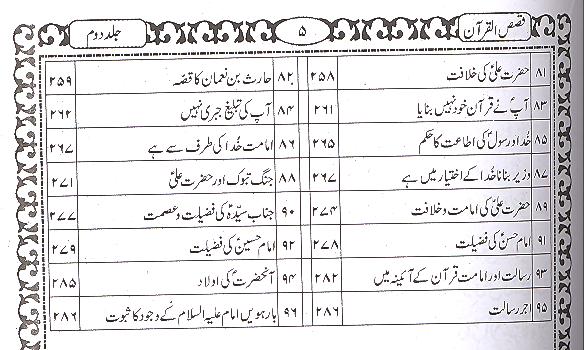 قصص القرآن ۵ جلد دوم
۸۱ حضرت علیؑ کی خلافت ۲۵۸ ۸۲ حارث بن نعمان کا قصہ ۲۵۹
۸۳ آپؐ نے قرآن خود نہیں بنایا ۲۶۱ ۸۴ آپؐ کی تبلیغ جبری نہیں ۲۶۲
۸۵ خُدا و رسولؐ کی اطاعت کا حکم ۲۶۵ ۸۶ امامت خُدا کی طرف سے ہے ۲۶۷
۸۷ وزیر بنانا خُدا کے اختیار میں ہے ۲۶۷ ۸۸ جنگ تبوک اور حضرت علیؑ ۲۷۱
۸۹ حضرت علیؑ کی امامت و خلافت ۲۷۴ ۹۰ جناب سیدہؑ کی فضیلت و عصمت ۲۷۷
۹۱ امام حسنؑ کی فضیلت ۲۷۸ ۹۲ امام حسینؑ کی فضیلت ۲۷۹
۹۳ رسالت اور امامت قرآن کے آئینہ میں ۲۸۲ ۹۴ آنحضرتؐ کی اولاد ۲۸۵
۹۵ اجر رسالت ۲۸۶ ۹۶ بارہویں امام علیہ السلام کے وجود کا ثبوت ۲۸۶